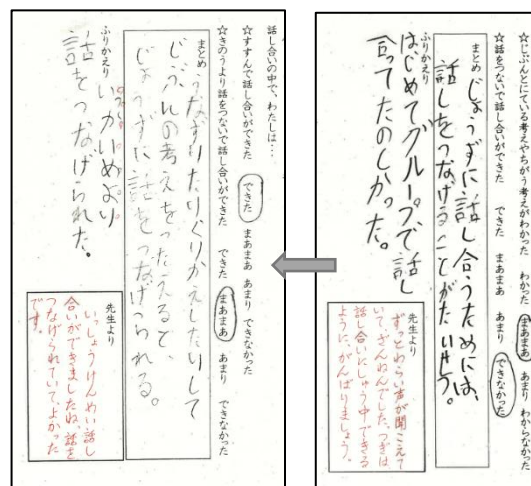 ☆じぶんとにている考えやちがう考えがわかった　わかった　まあまあ　あまり　わからなかった
☆話をつないで話し合いができた　できた　まあまあ　あまり　できなかった
まとめ
じょうずに話し合うためには、
話しをつなげることがたいせつ。
ふりかえり
はじめてグループで話し
合ってたのしかった。
先生より
ずっとわらい声が聞こえて
いて、ざんねんでした。つぎは、
話し合いにしゅう中できる
ように、がんばりましょう。
話し合いの中で、わたしは…
☆すすんで話し合いができた　できた　まあまあ　あまり　できなかった
☆きのうより話をつないで話し合いができた　できた　まあまあ　あまり　できなかった
まとめ
うなずいたりくりかえしたりして
じぶんの考えをつたえると、
じょうずに話をつなげられる。
ふりかえり
いかいめより
話をつなげられた。
先生より
いっしょうけんめい話し
合いができましたね。話を
つなげられていて、よかった
です。